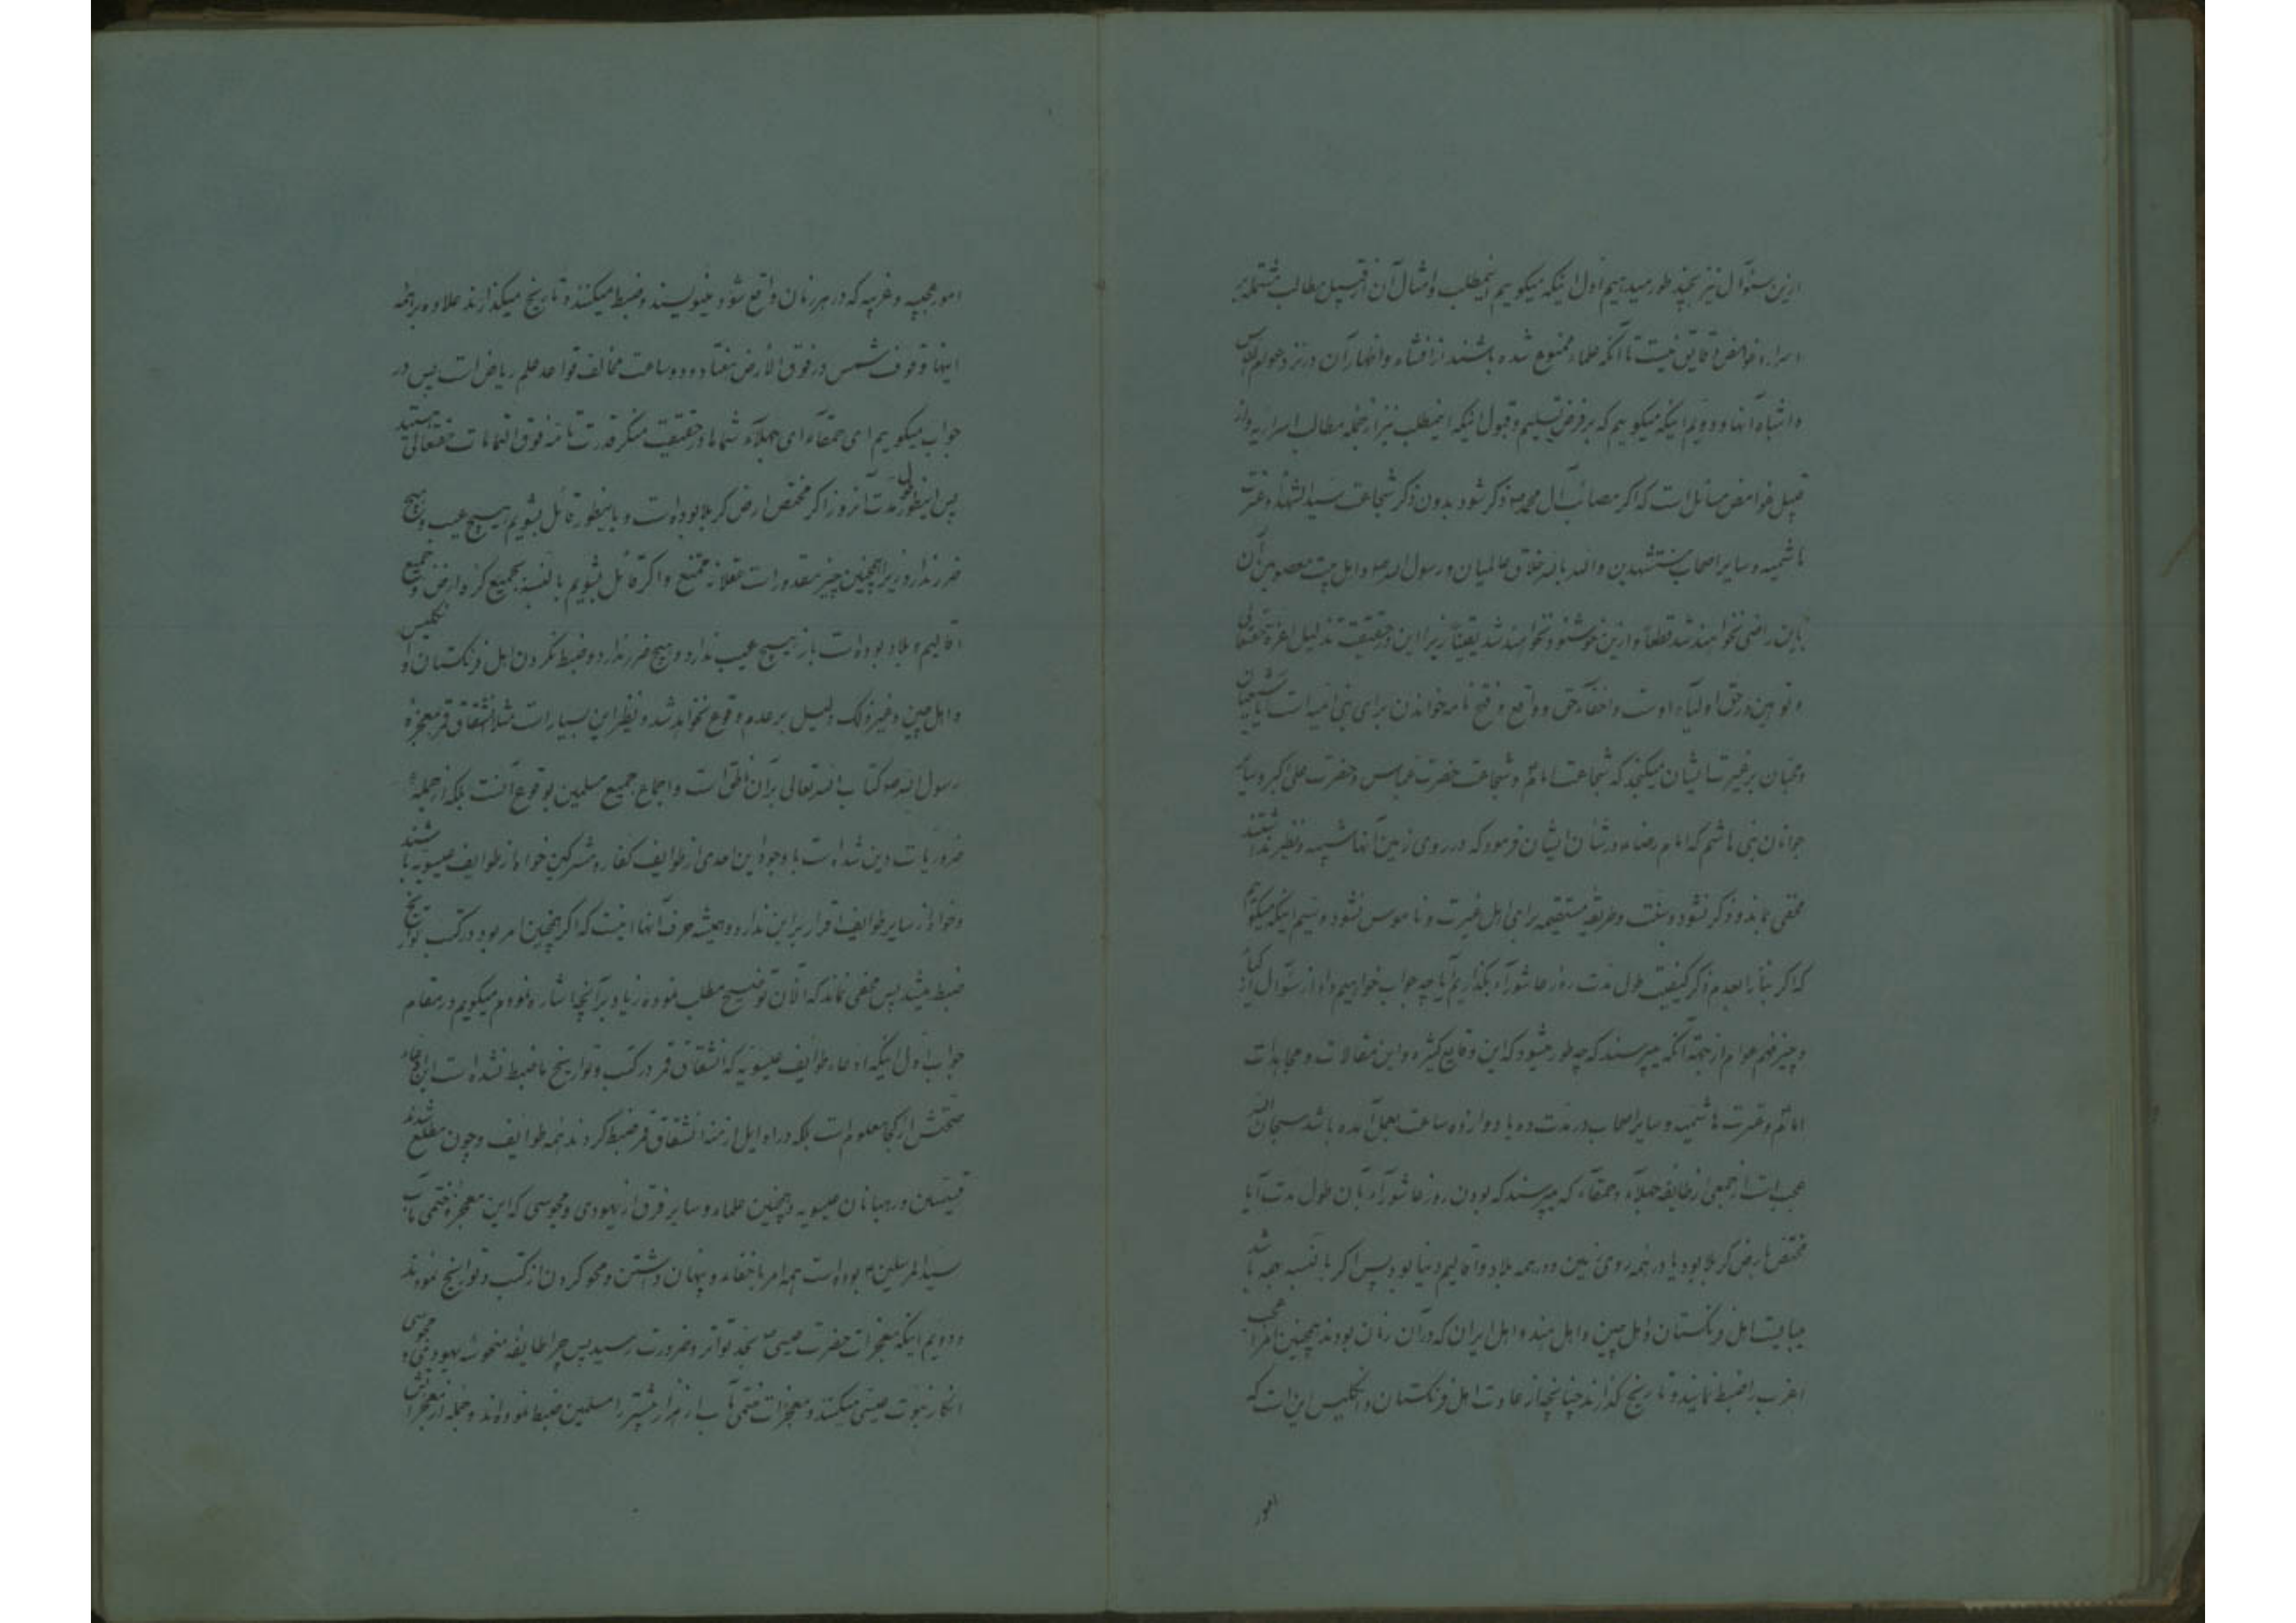 ازین سؤال نیز بچند طور میدهیم اول اینکه میگوییم اینمطلب و امثال آن از قبیل مطالب مشتمله بر
اسرار و غوامض و قایق نیست تا آنکه علماء ممنوع شده باشند از افشاء و اظهار آن در نزد عوام
و اشتباه آنها و دویم اینکه میگوییم که بر فرض تسلیم و قبول اینکه اینمطلب نیز از جمله مطالب اسراریه و از
قبیل غوامض مسائل است که اگر مصائب آل محمد ص ذکر شود بدون ذکر شجاعت سید الشهداء و عترت
هاشمیه و سایر اصحاب مستشهدین والله بالله خلاق عالمیان و رسول الله ص و اهل بیت معصومین آن
بآن راضی نخواهند شد قطعا و ازین خوشنود نخواهند شد یقینا زیرا این در حقیقت تذلیل اعزه حقتعالی
و توهین در حق اولیاء اوست و اخفاء حق و واقع و فتح نامه خواندن برای بنی امیه است آیا شیعیان
و محبان بر غیرت ایشان میگنجد که شجاعت امام و شجاعت حضرت عباس و حضرت علی اکبر و سایر
جوانان بنی هاشم که امام رضا ع در شأن ایشان فرمود که در روی زمین آنها شبیه و نظیر نداشتند
مخفی بماند و ذکر نشود و سنت و طریقه مستقیمه برای اهل غیرت و ناموس نشود و سیم اینکه میگوییم
که اگر بنا را بعدم ذکر کیفیت طول مدت روز عاشورآء بگذاریم آیا چه جواب خواهیم داد از سؤال
و چیز فهم عوام از جهة آنکه میپرسند که چه طور میشود که این وقایع کثیره و این مقالات و مجاهدات
امام و عترت هاشمیه و سایر اصحاب در مدت ده یا دوازده ساعت بعمل آمده باشد سبحان الله
عجب است از جمعی از طایفه جهلآء و حمقآء که میپرسند که بودن روز عاشورآء بآن طول مدت آیا
مختص بارض کربلا بود یا در همه روی زمین و در همه بلاد و اقالیم دنیا بود پس اگر بالنسبه بهمه باشد
میبایست اهل فرنگستان و اهل چین و اهل هند و اهل ایران که در آن زمان بودند همچنین امر عجب
اغرب را ضبط نمایند و تاریخ گذارند چنانچه از عادت اهل فرنگستان و انگلیس این است که
امور
امور عجیبه و غریبه که در هر زمان واقع شود مینویسند و ضبط میکنند و تاریخ میگذارند علاوه بر همه
اینها وقوف شمس در فوق الأرض هفتاد و دو ساعت مخالف قواعد علم ریاض است پس در
جواب میگوییم ای حمقآء ای جهلآء شماها در حقیقت منکر قدرت تامه فوق التمامات حقتعالی هستید
پس اینطول مدت آنروز اگر مختص ارض کربلا بوده است و باینطور قائل بشویم هیچ عیب و هیچ
ضرر ندارد زیرا همچنین چیز مقدور است عقلا نه ممتنع و اگر قائل بشویم بالنسبه بجمیع کره ارض و جمیع
اقالیم و بلاد بوده است باز هیچ عیب ندارد و هیچ ضرر ندارد و ضبط نکردن اهل فرنگستان و انگلیس
و اهل چین و غیر ذلک دلیل بر عدم وقوع نخواهد شد و نظیر این بسیار است مثلا انشقاق قمر معجزه
رسول الله ص و کتاب الله تعالی بر آن ناطق است و اجماع جمیع مسلمین بوقوع آنست بلکه از جمله
ضروریات دین شده است با وجود این احدی از طوایف کفار و مشرکین خواه از طوایف عیسویه باشند
و خواه از سایر طوایف اقرار بر این ندارد و همیشه حرف آنها اینست که اگر همچنین امر بود در کتب تواریخ
ضبط میشد پس مخفی نماند که الآن توضیح مطلب نموده زیاد بر آنچه اشاره نمودم میگویم در مقام
جواب اول اینکه ادعاء طوایف عیسویه که انشقاق قمر در کتب و تواریخ ما ضبط نشده است این ادعاء
صحتش از کجا معلوم است بلکه در اوایل ازمنه انشقاق قمر ضبط کردند همه طوایف و چون مطلع شدند
قسیسین و رهبانان عیسویه و همچنین علماء و سایر فرق از یهودی و مجوسی که این معجزه ختمی مآب
سید المرسلین ص بوده است همه امر باخفاء و پنهان داشتن و محو کردن از کتب و تواریخ نمودند
و دویم اینکه معجزات حضرت عیسی ع بحد تواتر و ضرورت رسید پس چرا طایفه منحوسه یهودی و مجوسی
انکار نبوت عیسی میکنند و معجزات ختمی مآب از هزار بیشتر را مسلمین ضبط نموده اند و جمله از معجزاتش